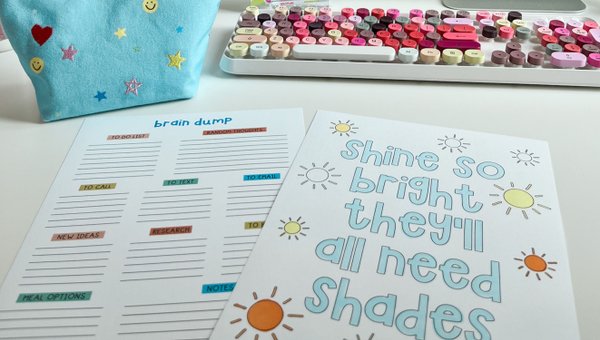 brain dump
TO DO LIST
RANDOM THOUGHTS
TO CALL
TO TEXT
TO EMAIL
NEW IDEAS
RESEARCH
MEAL OPTIONS
NOTES
Shine so
bright
they'll
all need
Shades